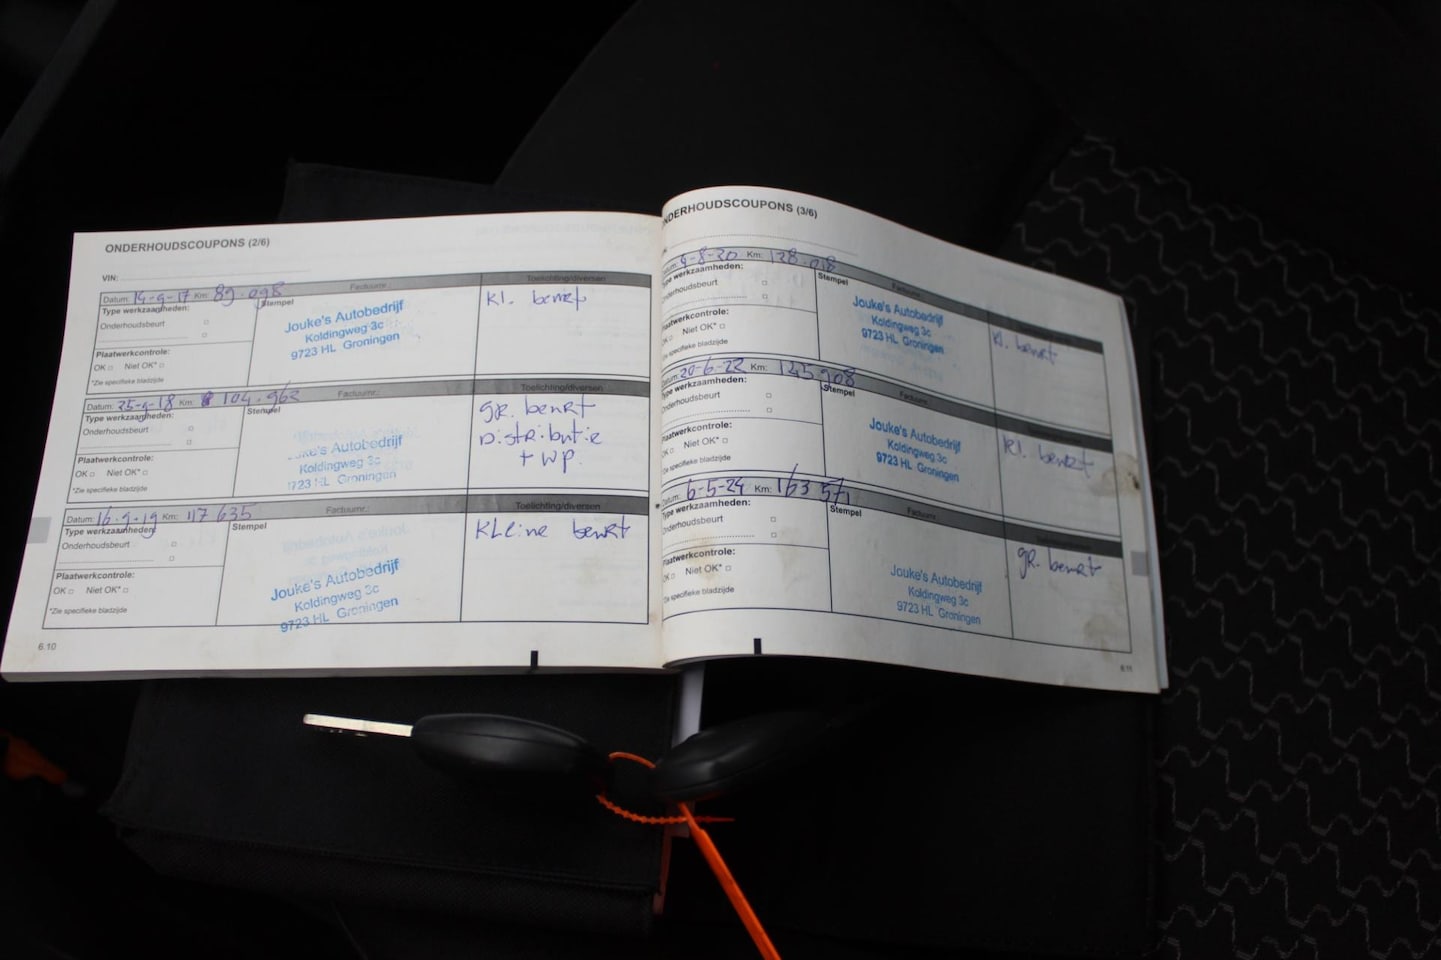 ONDERHOUDSCOUPONS (2/6)
VIN:
Datum: 14-9-17 Km: 89.098 Factuurnr.: Toelichting/diversen
Type werkzaamheden: Stempel
Onderhoudsbeurt
Jouke's Autobedrijf
Koldingweg 3c
9723 HL Groningen
Kl. beurt
Plaatwerkcontrole:
OK Niet OK*
*Zie specifieke bladzijde
Datum: 25-9-18 Km: 104.962 Factuurnr.: Toelichting/diversen
Type werkzaamheden: Stempel
Onderhoudsbeurt
Jouke's Autobedrijf
Koldingweg 3c
9723 HL Groningen
gr. beurt
Distributie
+ wp.
Plaatwerkcontrole:
OK Niet OK*
*Zie specifieke bladzijde
Datum: 16-9-19 Km: 117 635 Factuurnr.: Toelichting/diversen
Type werkzaamheden: Stempel
Onderhoudsbeurt
Jouke's Autobedrijf
Koldingweg 3c
9723 HL Groningen
Kleine beurt
Plaatwerkcontrole:
OK Niet OK*
*Zie specifieke bladzijde
6.10
ONDERHOUDSCOUPONS (3/6)
Datum: 9-8-20 Km: 128.018 Factuurnr.:
Type werkzaamheden: Stempel
Onderhoudsbeurt
Jouke's Autobedrijf
Koldingweg 3c
9723 HL Groningen
Kl. beurt
Plaatwerkcontrole:
OK Niet OK*
*Zie specifieke bladzijde
Datum: 20-6-22 Km: 145 908 Factuurnr.:
Type werkzaamheden: Stempel
Onderhoudsbeurt
Jouke's Autobedrijf
Koldingweg 3c
9723 HL Groningen
Kl. beurt
Plaatwerkcontrole:
OK Niet OK*
*Zie specifieke bladzijde
Datum: 6-5-24 Km: 163 571 Factuurnr.:
Type werkzaamheden: Stempel
Onderhoudsbeurt
Jouke's Autobedrijf
Koldingweg 3c
9723 HL Groningen
gr. beurt
Plaatwerkcontrole:
OK Niet OK*
*Zie specifieke bladzijde
6.11